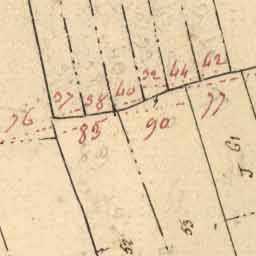 37 38 40 32 44 42
76 85 90 77
52 53 J 61